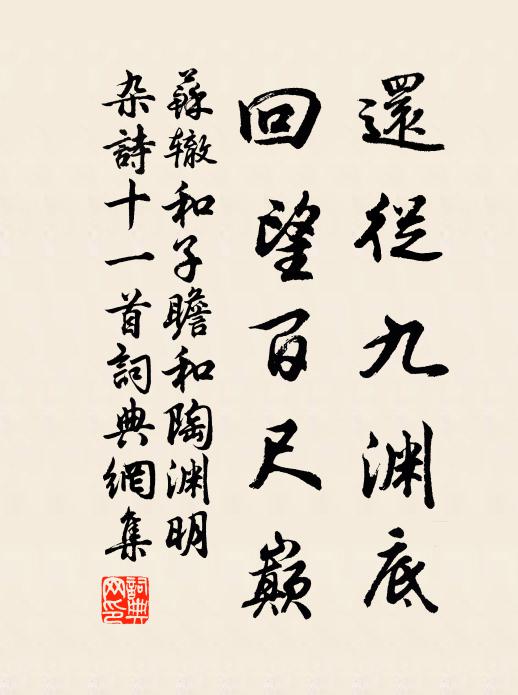 還從九渊底
回望百尺巔
蘇辙和子瞻和陶渊明
杂詩十一首詞典網集
詞典网印